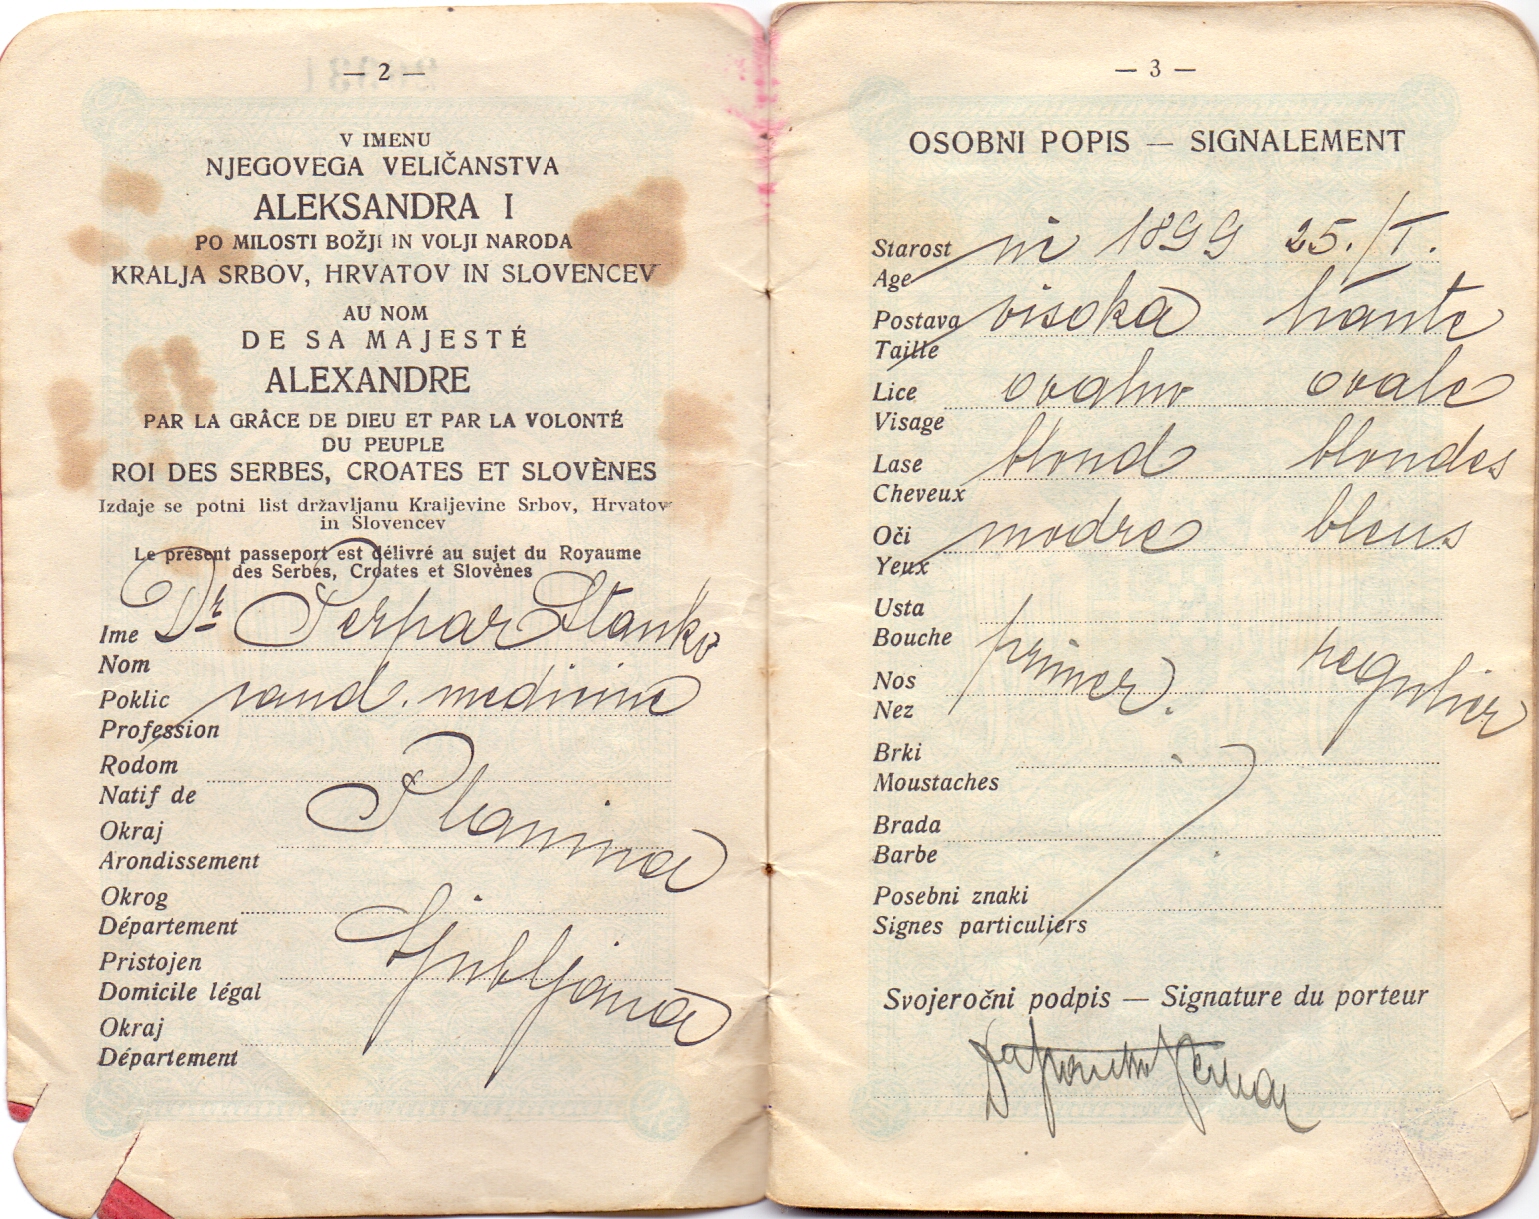 — 2 —
V IMENU
NJEGOVEGA VELIČANSTVA
ALEKSANDRA I
PO MILOSTI BOŽJI IN VOLJI NARODA
KRALJA SRBOV, HRVATOV IN SLOVENCEV
AU NOM
DE SA MAJESTÉ
ALEXANDRE
PAR LA GRÂCE DE DIEU ET PAR LA VOLONTÉ
DU PEUPLE
ROI DES SERBES, CROATES ET SLOVÈNES
Izdaje se potni list državljanu Kraljevine Srbov, Hrvatov
in Slovencev
Le présent passeport est délivré au sujet du Royaume
des Serbes, Croates et Slovènes
Ime Dr Perpar Stanko
Nom
Poklic cand. medicine
Profession
Rodom
Natif de
Planina
Okraj
Arondissement
Okrog
Département
Ljubljana
Pristojen
Domicile légal
Okraj
Département
— 3 —
OSOBNI POPIS — SIGNALEMENT
Starost 1899 25./I.
Age
Postava visoka haute
Taille
Lice ovalno ovale
Visage
Lase blond blondes
Cheveux
Oči modre bleus
Yeux
Usta
Bouche primer. regulier
Nos
Nez
Brki
Moustaches
Brada
Barbe
Posebni znaki
Signes particuliers
Svojeročni podpis — Signature du porteur